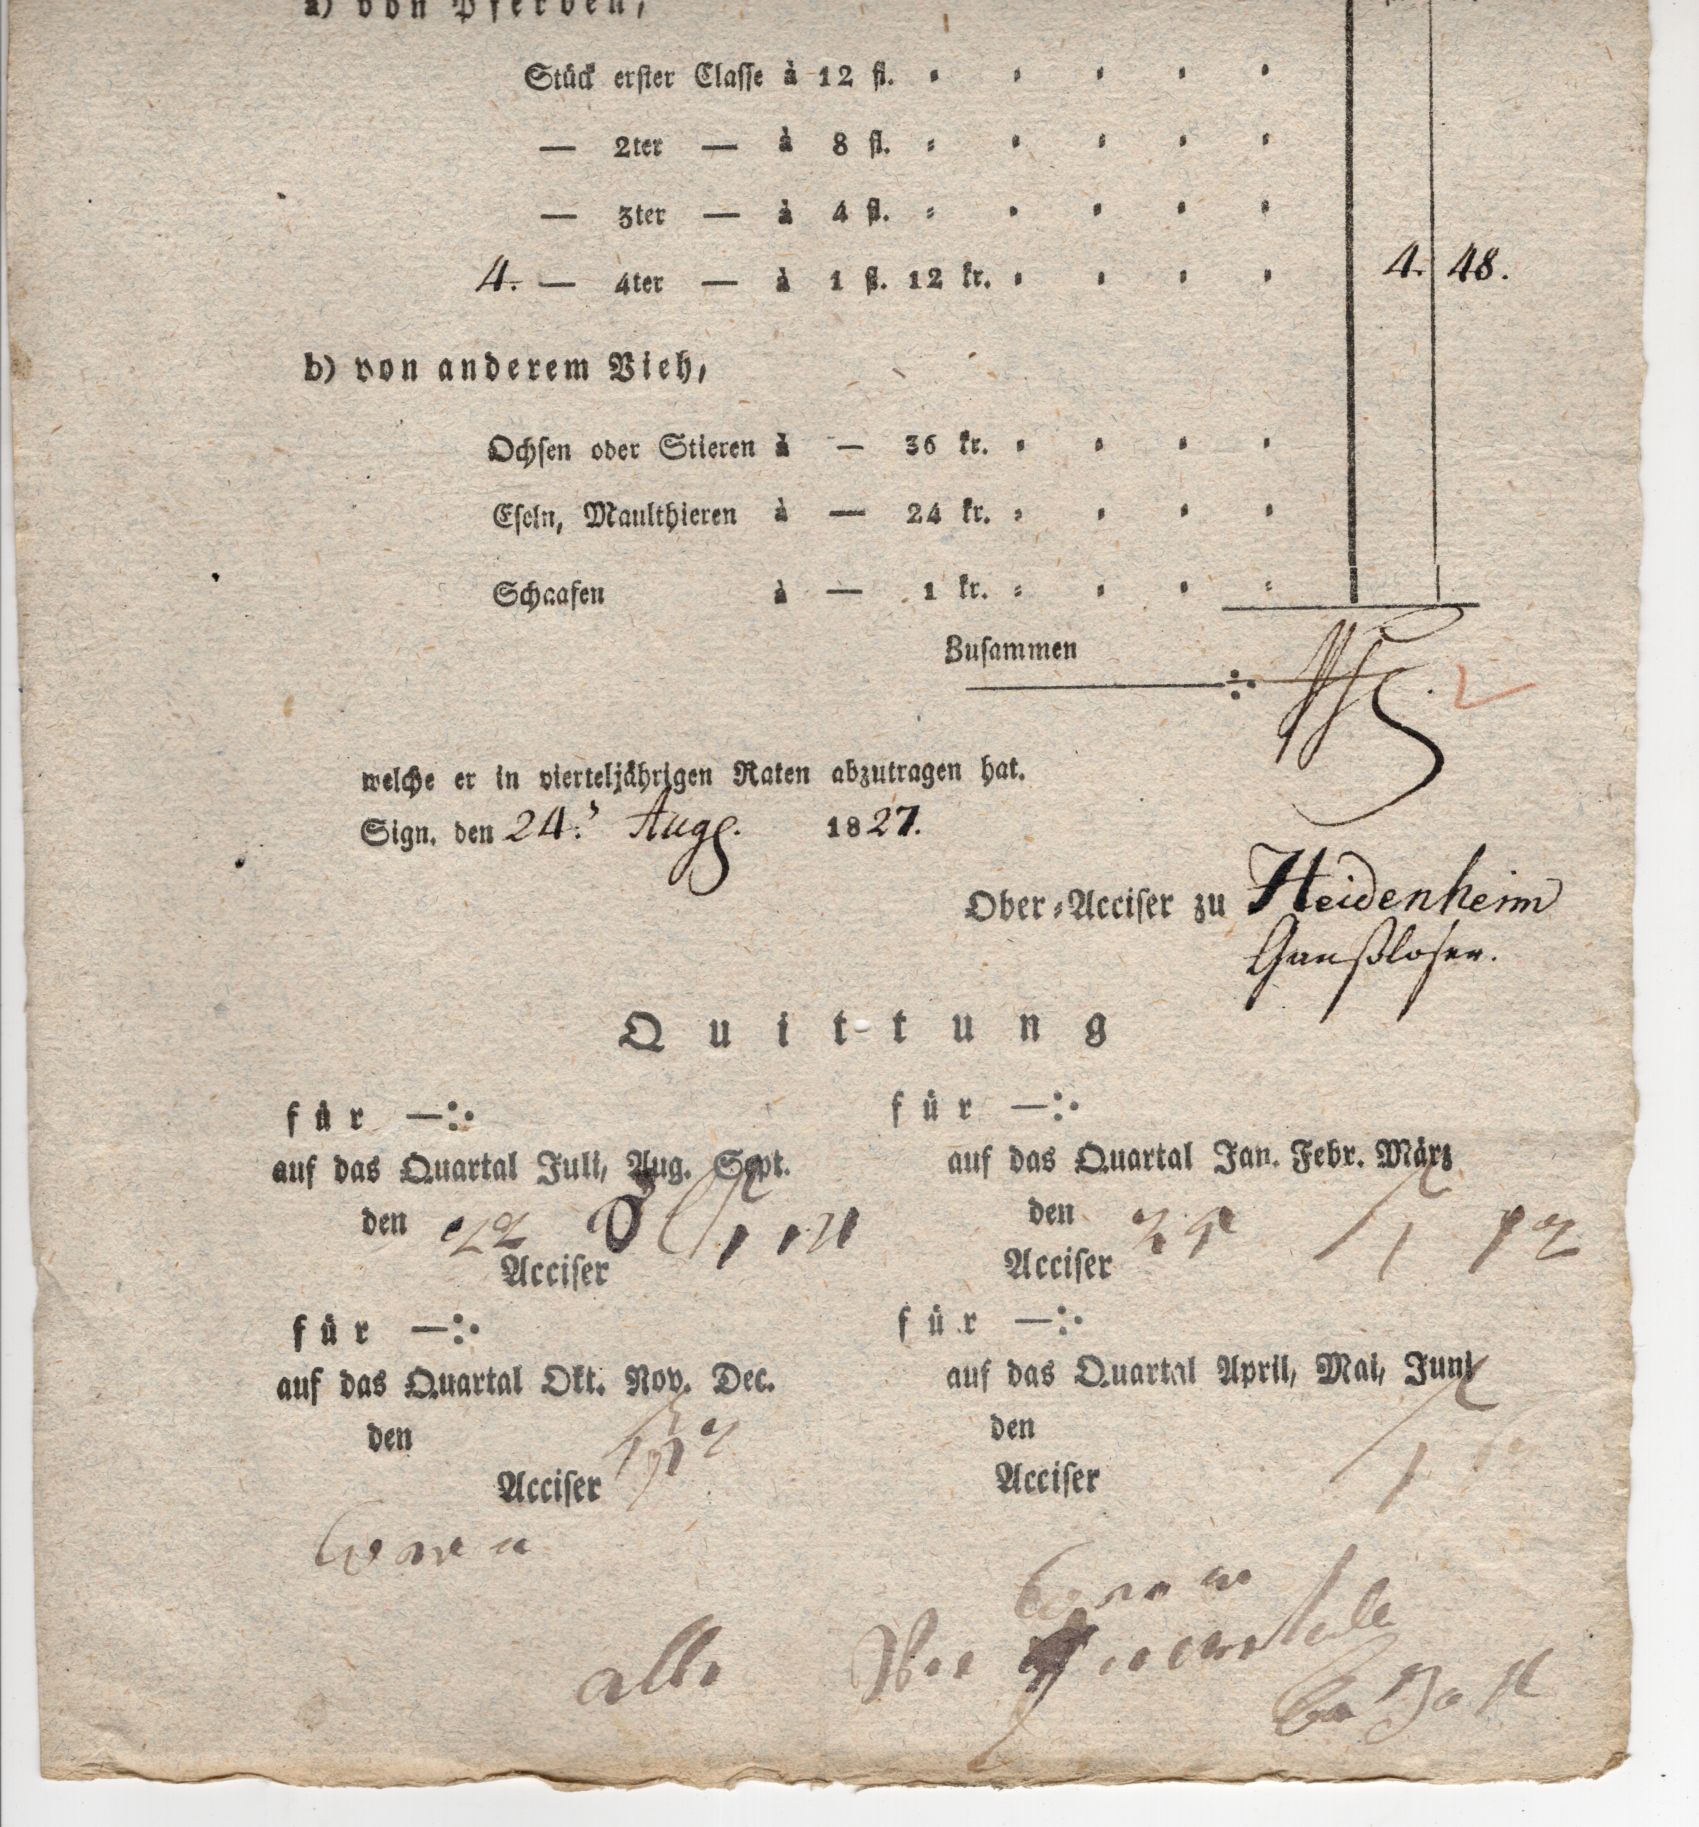 a) von Pferden,
Stück erster Classe à 12 fl.
— 2ter — à 8 fl.
— 3ter — à 4 fl.
4. — 4ter — à 1 fl. 12 kr. 4. 48.
b) von anderem Vieh,
Ochsen oder Stieren à — 36 kr.
Eseln, Maulthieren à — 24 kr.
Schaafen à — 1 kr.
Zusammen
welche er in vierteljährigen Raten abzutragen hat.
Sign. den 24. Aug. 1827.
Ober-Acciser zu Heidenheim
Ganßloser.
Quittung
für —:·
auf das Quartal Juli, Aug. Sept.
den 22
Acciser
für —:·
auf das Quartal Okt. Nov. Dec.
den
Acciser
für —:·
auf das Quartal Jan. Febr. März
den
Acciser
für —:·
auf das Quartal April, Mai, Juni
den
Acciser
alle
bezalt